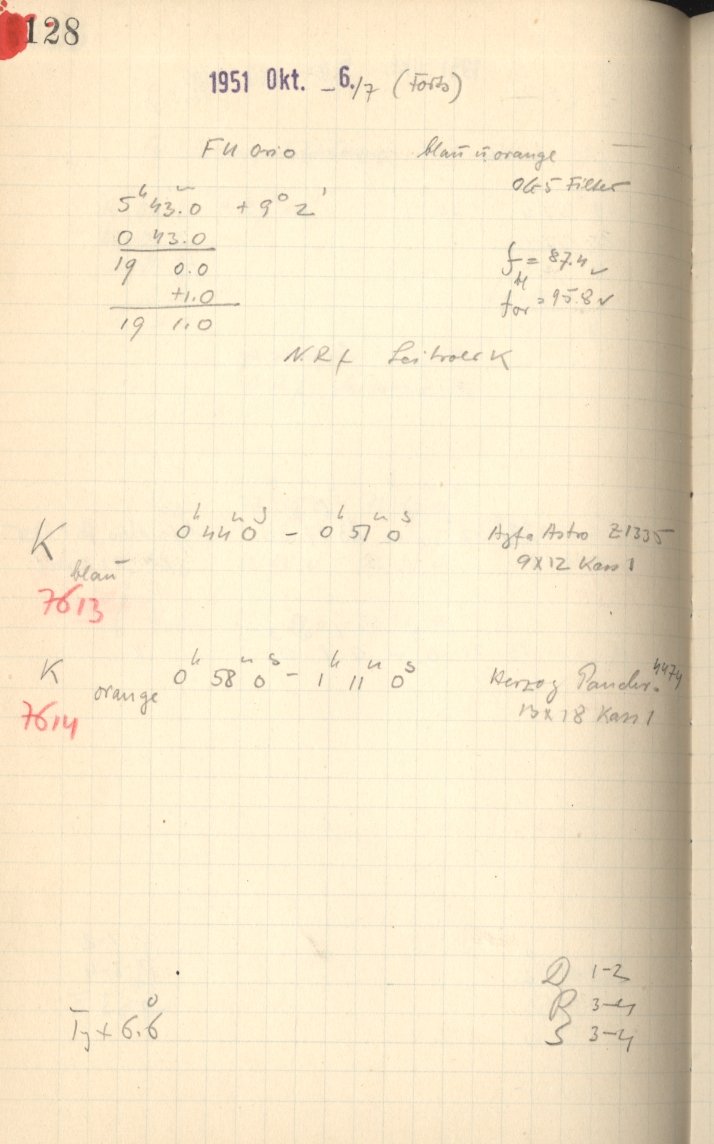 128
1951 Okt. _6./7 (Forts)
FU Orio blau u orange
OG5 Filter
5ʰ 43.0ᵐ + 9° 2'
0 43.0
19 0.0
+1.0
19 1.0
f = 87.4 ✓
for = 95.8 ✓
N.R.f Leitrohr K
K blau 0ʰ 44ᵐ 0ˢ – 0ʰ 51ᵐ 0ˢ Agfa Astro Z1335
9x12 Kass 1
7613
K orange 0ʰ 58ᵐ 0ˢ – 1ʰ 11ᵐ 0ˢ Herzog Panchr. 4474
13x18 Kass 1
7614
D 1-2
R 3-4
S 3-4
T + 6.6°